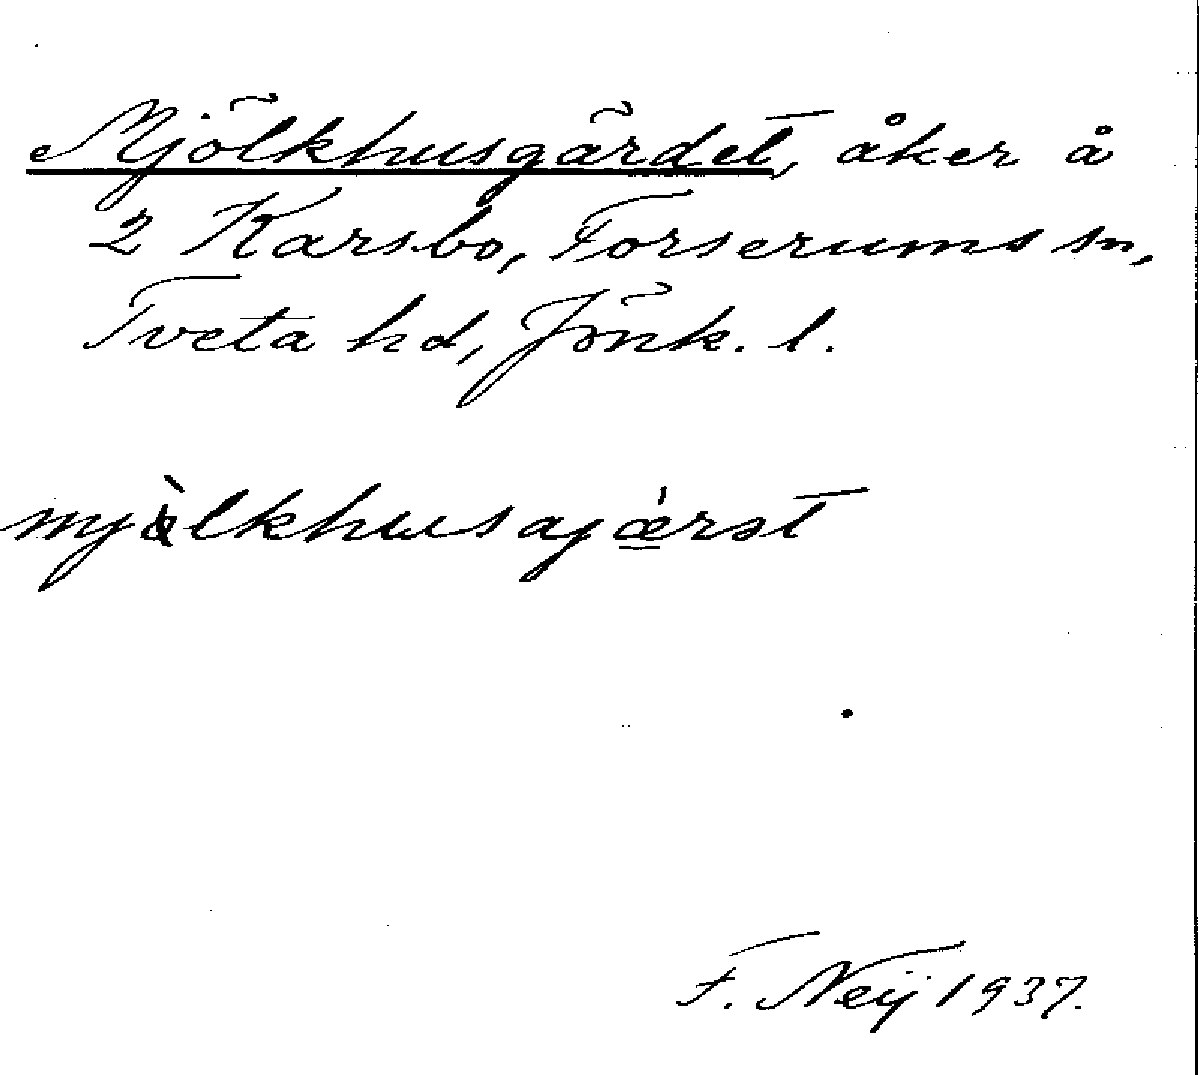 Mjölkhusgärdet, åker å
2 Karsbo, Forserums sn,
Tveta hd, Jönk. l.
mjòlkhusajǽrst
F. Neij 1937.